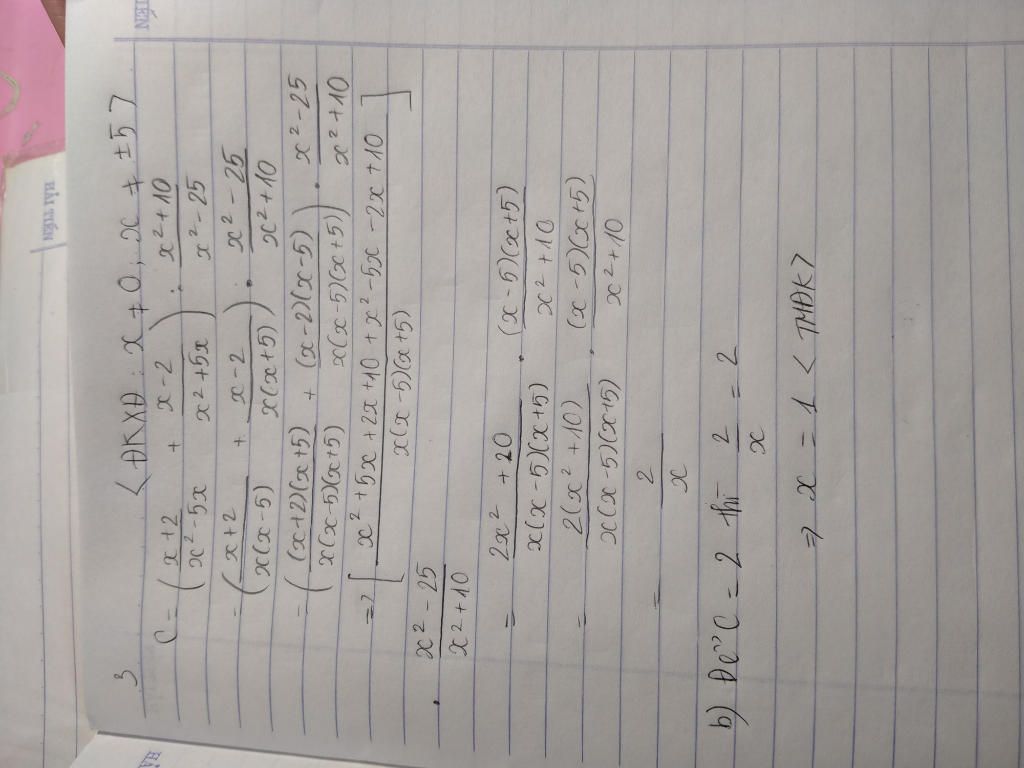 3 < ĐKXĐ: x ≠ 0, x ≠ ±5 >
C = ( (x+2)/(x²-5x) + (x-2)/(x²+5x) ) : (x²+10)/(x²-25)
= ( (x+2)/(x(x-5)) + (x-2)/(x(x+5)) ) . (x²-25)/(x²+10)
= ( (x+2)(x+5)/(x(x-5)(x+5)) + (x-2)(x-5)/(x(x-5)(x+5)) ) . (x²-25)/(x²+10)
=> [ (x²+5x+2x+10+x²-5x-2x+10)/(x(x-5)(x+5)) ]
. (x²-25)/(x²+10)
= (2x²+20)/(x(x-5)(x+5)) . (x-5)(x+5)/(x²+10)
= 2(x²+10)/(x(x-5)(x+5)) . (x-5)(x+5)/(x²+10)
= 2/x
b) Để C = 2 thì 2/x = 2
=> x = 1 < TMĐK >
HẢI TIẾN